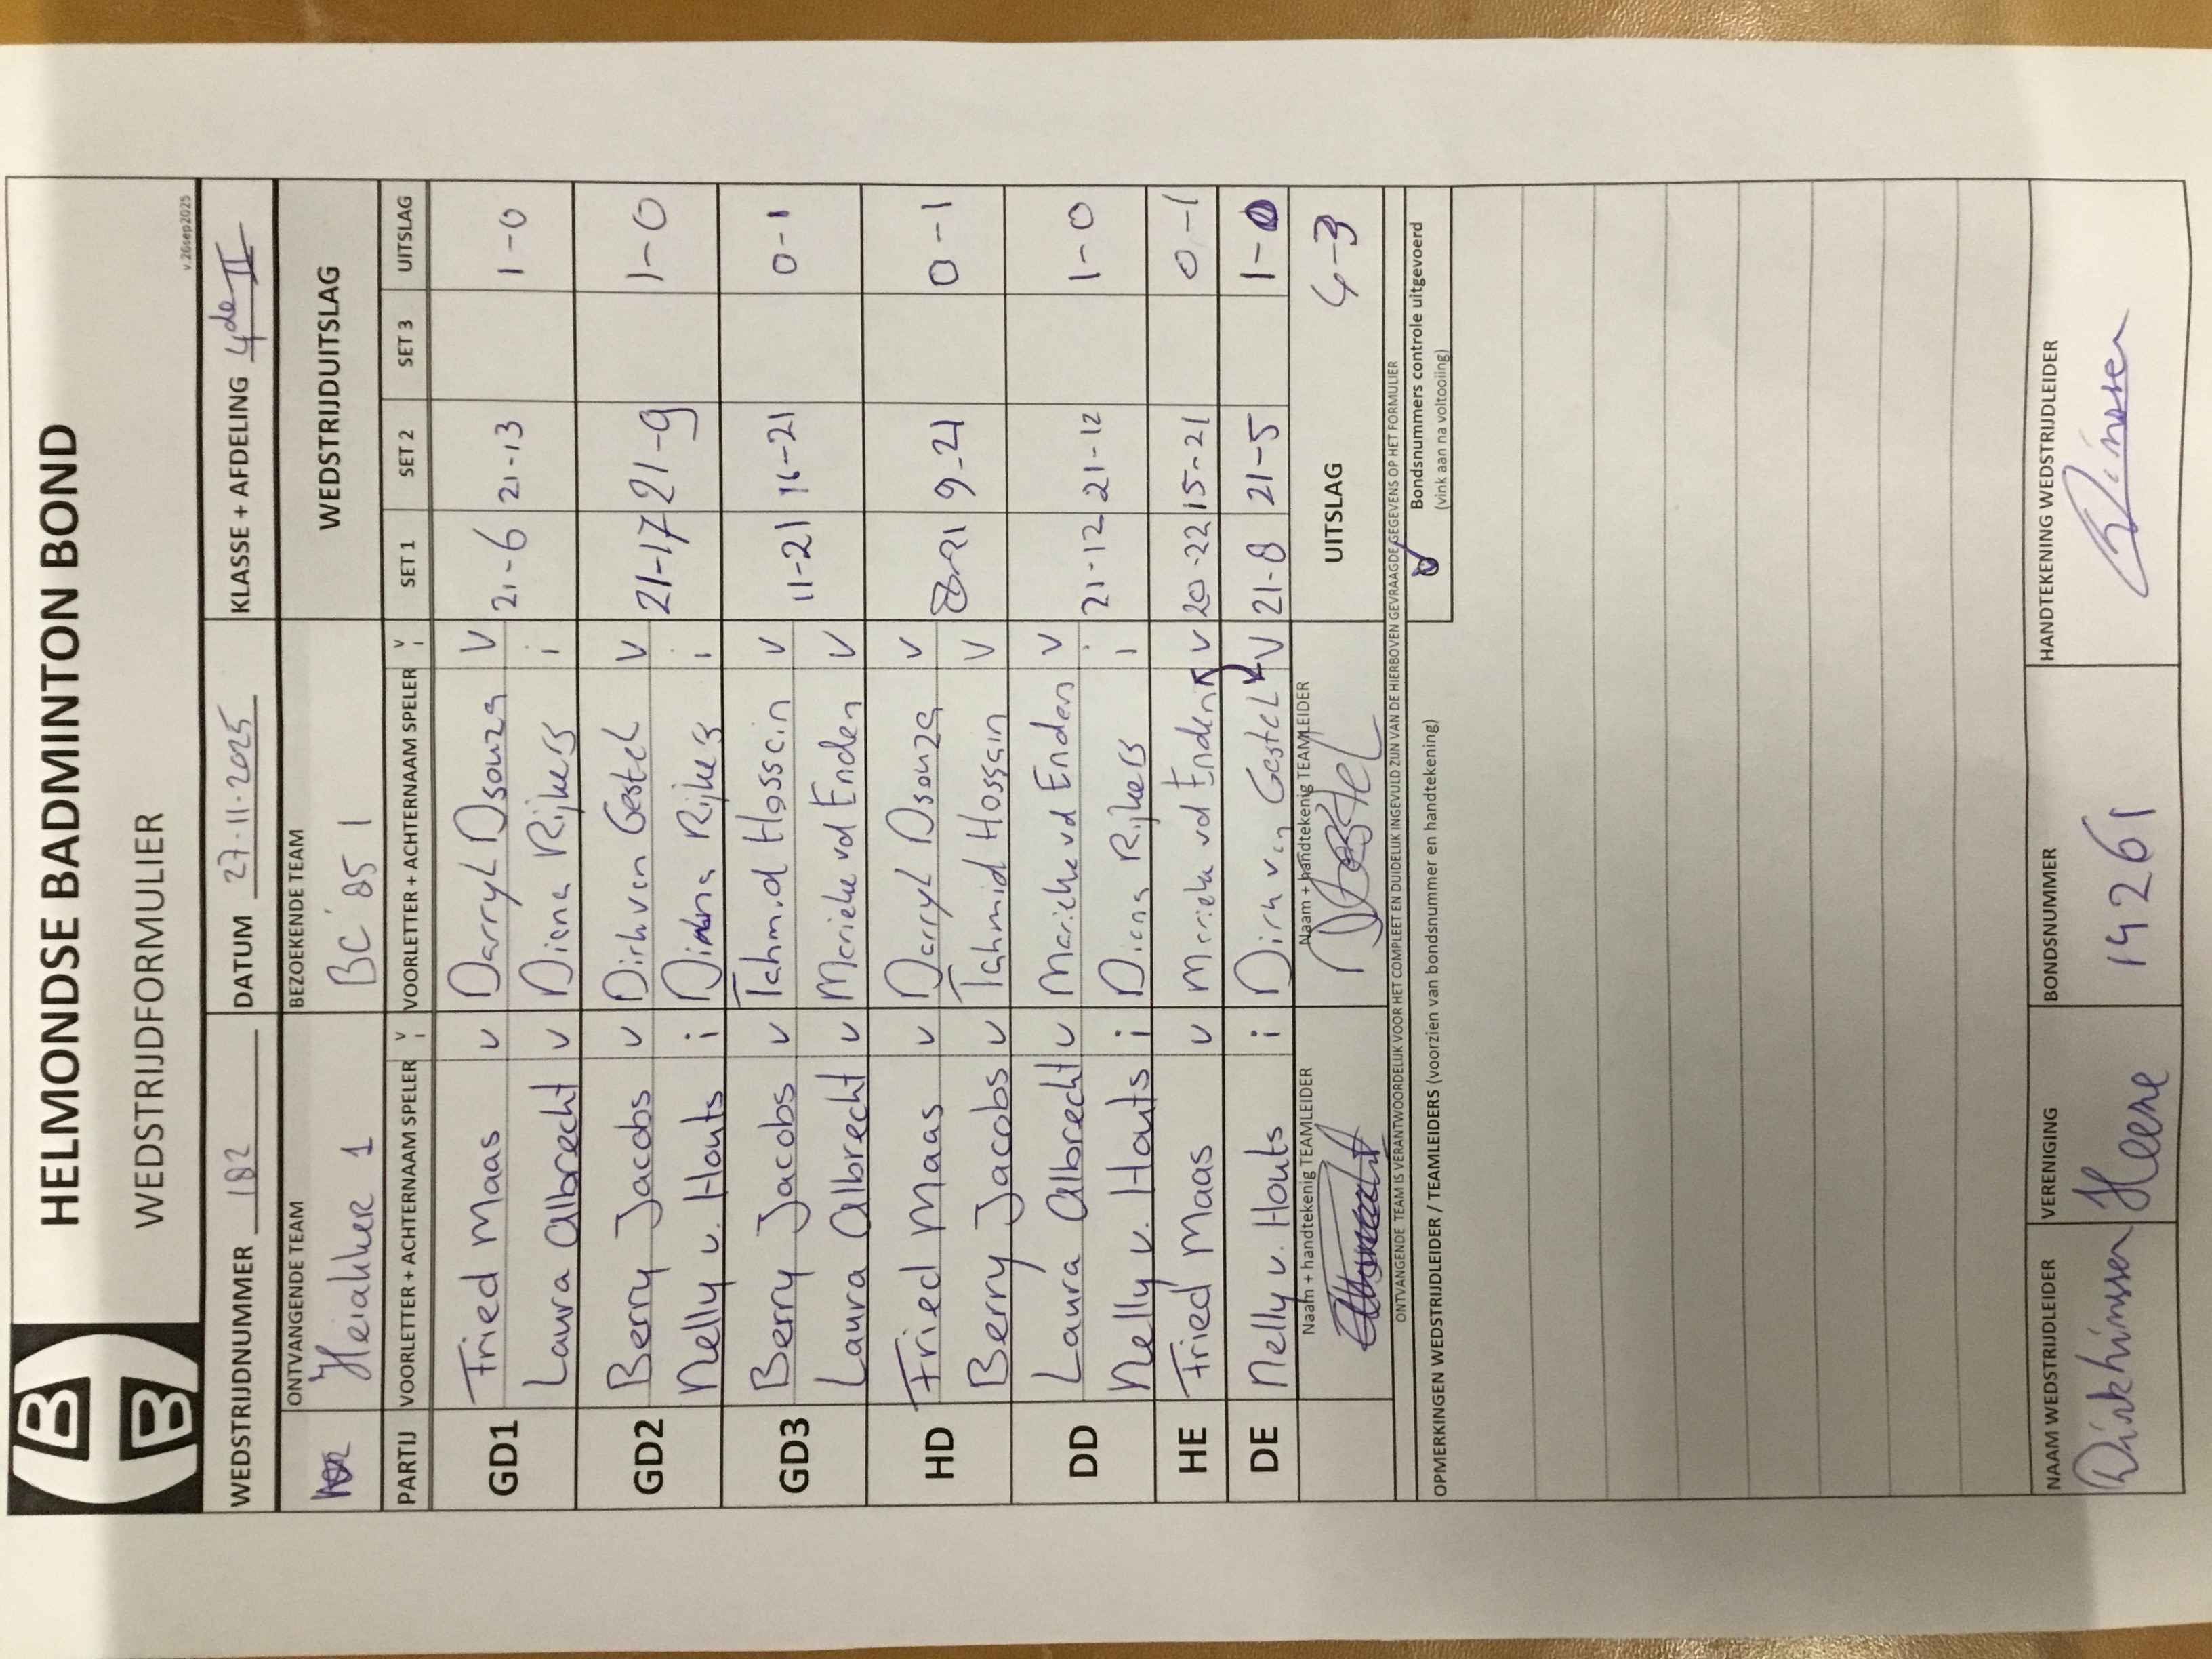 HELMONDSE BADMINTON BOND
WEDSTRIJDFORMULIER
v.26sep2025
WEDSTRIJDNUMMER 182 DATUM 27-11-2025 KLASSE + AFDELING 4de II
ONTVANGENDE TEAM BEZOEKENDE TEAM WEDSTRIJDUITSLAG
Heiakker 1 BC'85 1
PARTIJ VOORLETTER + ACHTERNAAM SPELER V i VOORLETTER + ACHTERNAAM SPELER V i SET 1 SET 2 SET 3 UITSLAG
GD1 Fried Maas v Darryl Dsouza V 21-6 21-13 1-0
Laura Albrecht v Diana Rijkers i
GD2 Berry Jacobs v Dirk van Gestel V 21-17 21-9 1-0
Nelly v. Houts i Diana Rijkers i
GD3 Berry Jacobs v Tahmid Hossain V 11-21 16-21 0-1
Laura Albrecht v Marieke vd Enden V
HD Fried Maas v Darryl Dsouza V 8-21 9-21 0-1
Berry Jacobs v Tahmid Hossain V
DD Laura Albrecht v Marieke vd Enden V 21-12 21-12 1-0
Nelly v. Houts i Diana Rijkers i
HE Fried Maas v Marieke vd Enden V 20-22 15-21 0-1
DE Nelly v. Houts i Dirk van Gestel V 21-8 21-5 1-0
Naam + handtekenig TEAMLEIDER Naam + handtekenig TEAMLEIDER UITSLAG 4-3
DGestel
ONTVANGENDE TEAM IS VERANTWOORDELIJK VOOR HET COMPLEET EN DUIDELIJK INGEVULD ZIJN VAN DE HIERBOVEN GEVRAAGDE GEGEVENS OP HET FORMULIER
Bondsnummers controle uitgevoerd
(vink aan na voltooiing)
OPMERKINGEN WEDSTRIJDLEIDER / TEAMLEIDERS (voorzien van bondsnummer en handtekening)
NAAM WEDSTRIJDLEIDER VERENIGING BONDSNUMMER HANDTEKENING WEDSTRIJDLEIDER
14261